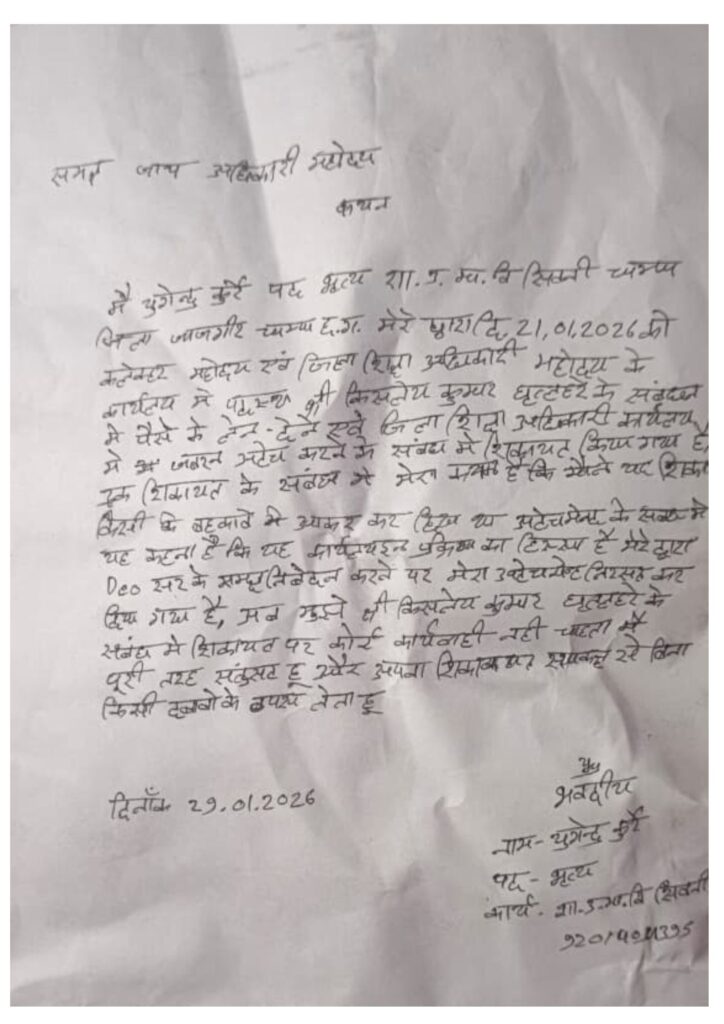 समक्ष जाच अधिकारी महोदय
कथन
मै युगेन्द्र कुर्रे पद भृत्य शा.उ.मा.वि सिवनी चाम्पा
जिला जाजगीर चाम्पा छ.ग. मेरे द्वारा दि. 21.01.2026 को
कलेक्टर महोदय एवं जिला शिक्षा अधिकारी महोदय के
कार्यलय मे पदस्थ श्री किसलेय कुमार धृतलहरे के संबंध
मे पैसे के लेन-देन एवं जिला शिक्षा अधिकारी कार्यलय
मे जबरन अटैच करने के संबंध मे शिकायत किया गया है,
उक्त शिकायत के संबंध मे मेरा कथन है कि मैने यह शिका
किसी कि बहकावे मे आकर कर दिया था अटेचमेन्ट के संबंध मे
यह कहना है कि यह प्रक्रिया का हिस्सा है मेरे द्वारा
Deo सर के समक्ष निवेदन करने पर मेरा अटेचमेन्ट निरस्त कर
दिया गया है, अब मुझे श्री किसलेय कुमार धृतलहरे के
संबंध मे शिकायत पर कोई कार्यवाही नही चाहता मै
पूरी तरह संतुसट हू और अपना शिकायत बिना
किसी दबाव के वापस लेता हू
दिनाँक 29.01.2026
भवदीय
नाम- युगेन्द्र कुर्रे
पद - भृत्य
कार्य. शा.उ.मा.वि सिवनी